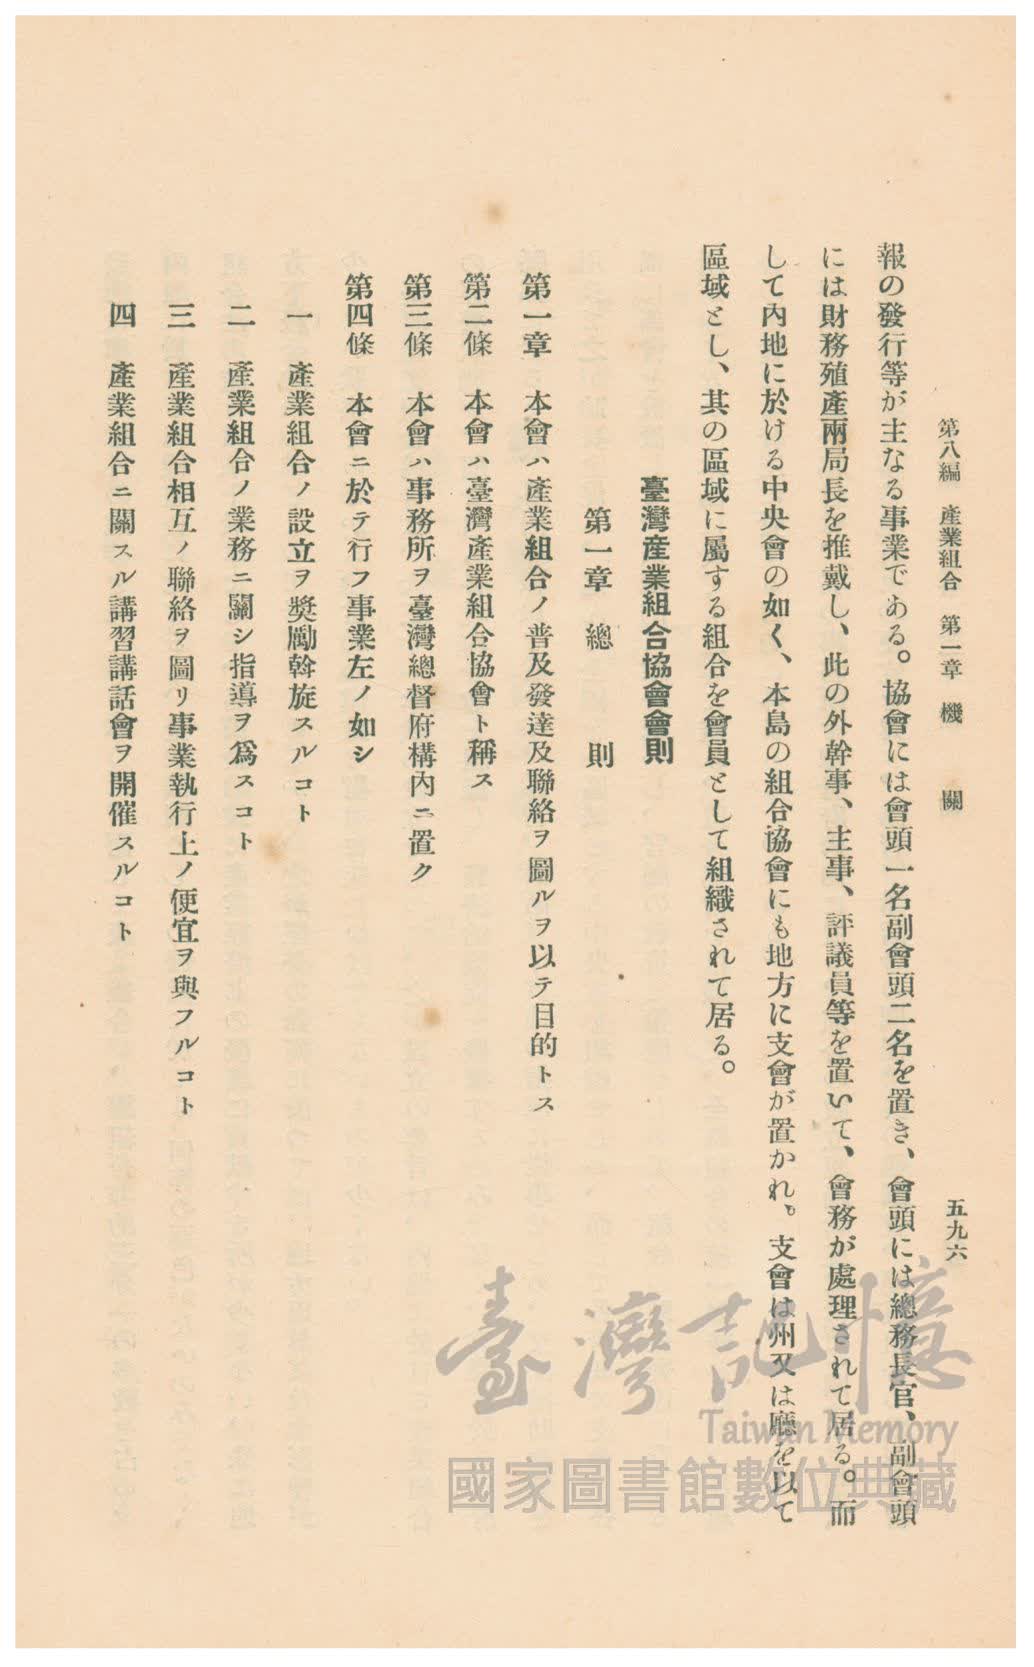 第八編 產業組合 第一章 機關
五九六
報の發行等が主なる事業である。協會には會頭一名副會頭二名を置き、會頭には總務長官、副會頭
には財務殖產兩局長を推戴し、此の外幹事、主事、評議員等を置いて、會務が處理されて居る。而
して內地に於ける中央會の如く、本島の組合協會にも地方に支會が置かれ。支會は州又は廳を以て
區域とし、其の區域に屬する組合を會員として組織されて居る。
臺灣産業組合協會會則
第一章 總則
第一章 本會ハ產業組合ノ普及發達及聯絡ヲ圖ルヲ以テ目的トス
第二條 本會ハ臺灣產業組合協會ト稱ス
第三條 本會ハ事務所ヲ臺灣總督府構內ニ置ク
第四條 本會ニ於テ行フ事業左ノ如シ
一 產業組合ノ設立ヲ奬勵斡旋スルコト
二 產業組合ノ業務ニ關シ指導ヲ爲スコト
三 產業組合相互ノ聯絡ヲ圖リ事業執行上ノ便宜ヲ與フルコト
四 產業組合ニ關スル講習講話會ヲ開催スルコト
臺灣記憶
Taiwan Memory
國家圖書館數位典藏